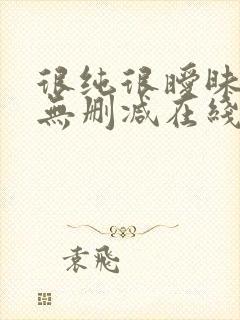 很纯很暧昧
無删减在綫
袁飛